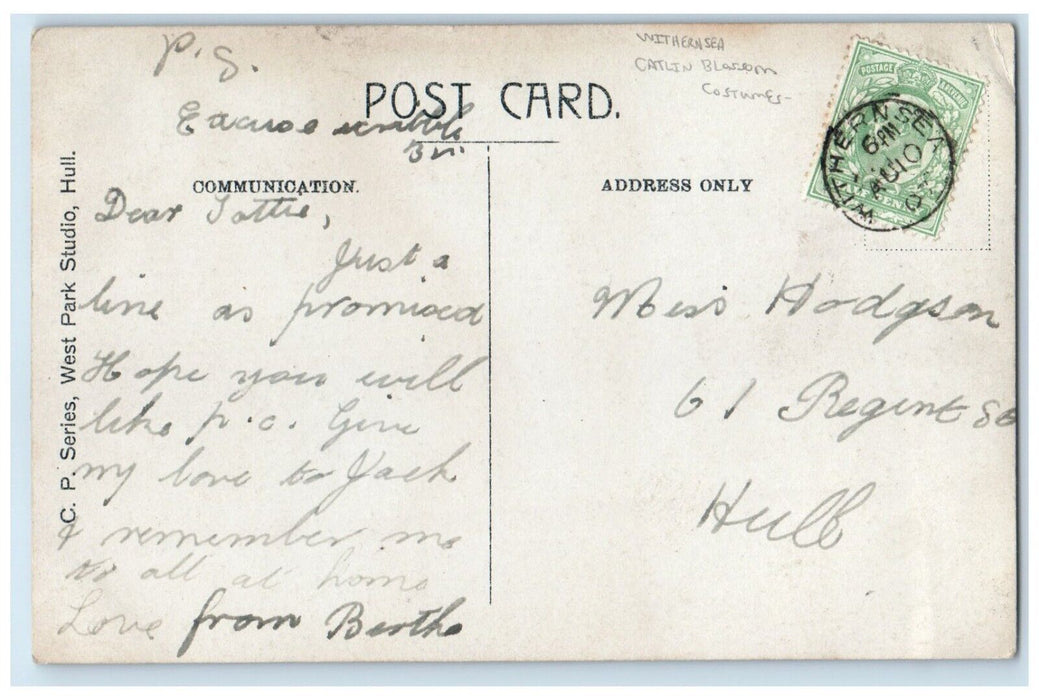 P.S.
Excuse scribble
POST CARD.
WITHERNSEA
CATLIN Blossom
COSTUMES-
POSTAGE
WITHERNSEA
6 PM
AU 10
07
COMMUNICATION.
ADDRESS ONLY
C. P. Series, West Park Studio, Hull.
Dear Tottie,
Just a
line as promised
Hope you will
like p.c. Give
my love to Jack
& remember me
to all at home
Love from Bertha
Miss Hodgson
61 Regent St
Hull